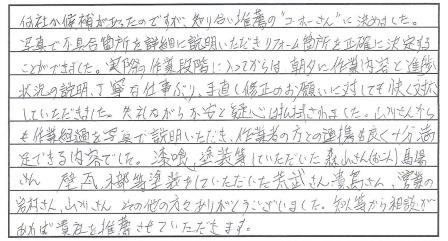 何社か候補があったのですが、知り合い推薦の"ユーホーさん"に決めました。
写真で不具合箇所を詳細に説明いただきリフォーム箇所を正確に決定する
ことができました。実際の作業段階に入ってからは朝夕に作業内容と進捗
状況の説明、丁寧な仕事ぶり、手直し修正のお願いに対しても快く対応
していただきました。失礼ながら不安と疑心は払拭されました。山川さんから
も作業経過を写真で説明いただき、作業者の方との連携も良く十分満
足できる内容でした。漆喰、塗装等していただいた森山さん 馬場
さん 壁、瓦、木部等塗装をしていただいた荒武さん、貴島さん、営業の
岩村さん、山川さん その他の方々ありがとうございました。知人等から相談が
あれば貴社を推薦させていただきます。